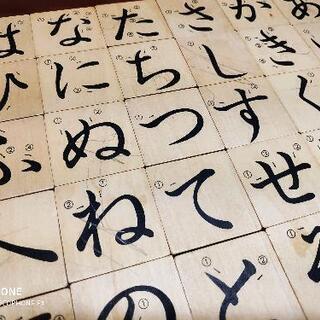 あ
かきく
さしすせ
たちつてと
なにぬねの
はひふへ